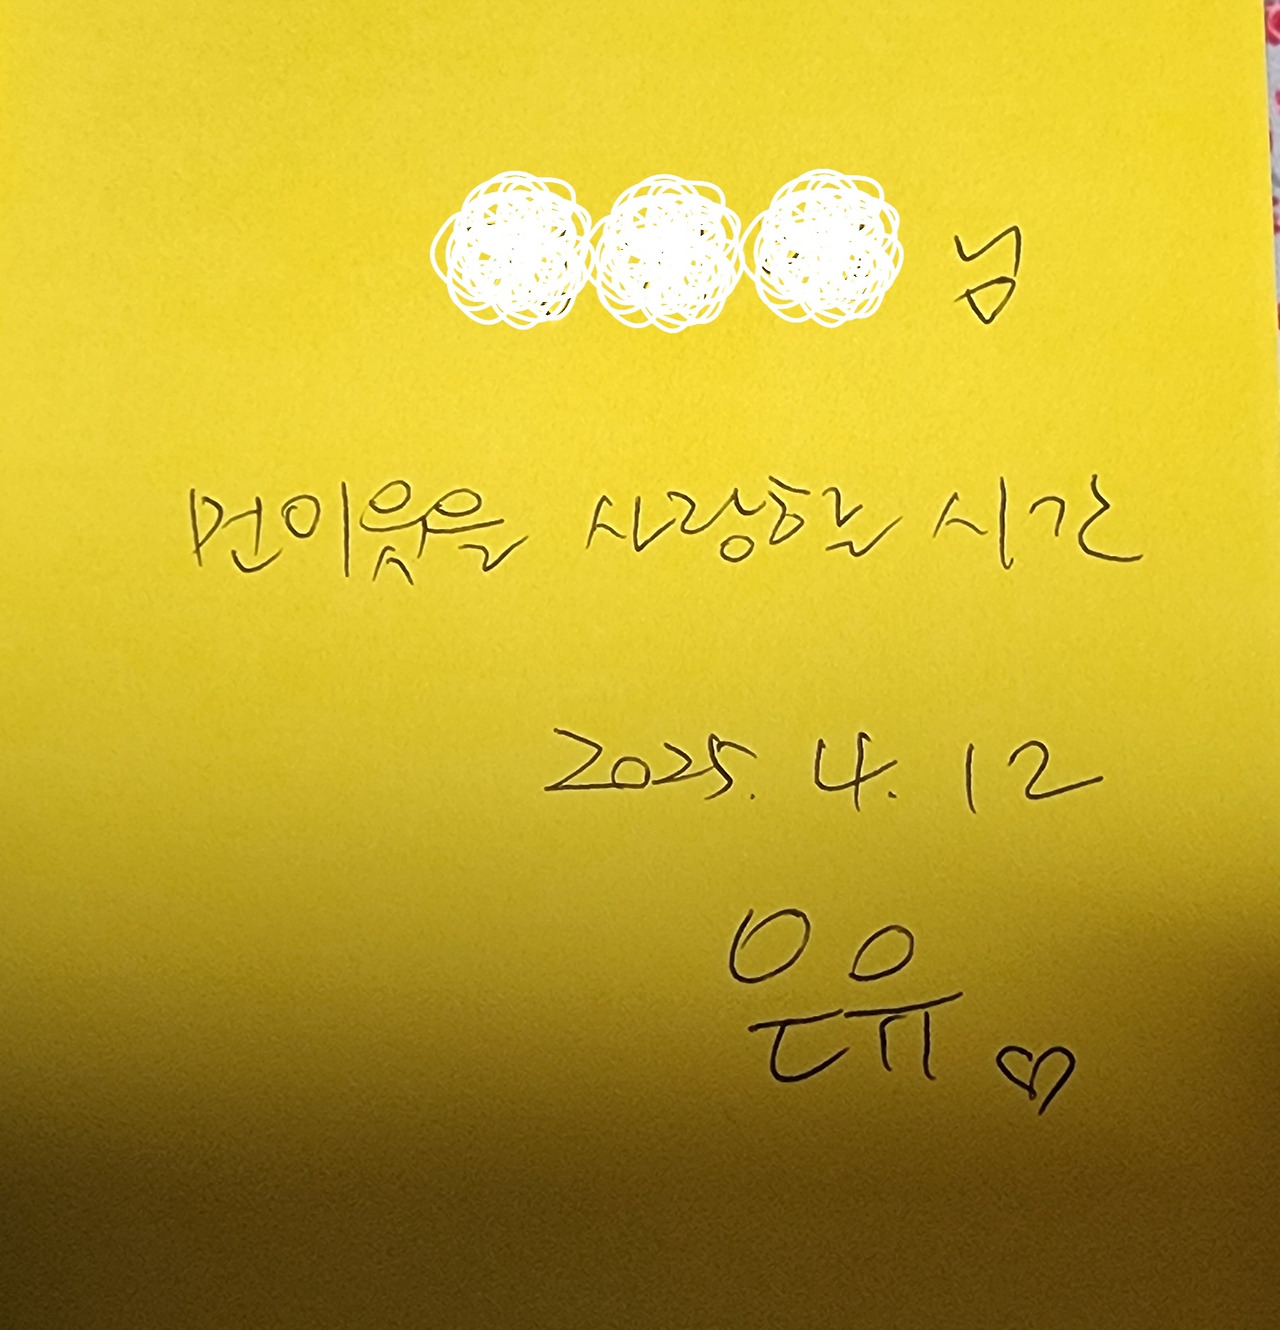 님
먼 이웃을 사랑할 시간
2025. 4. 12
은유♡